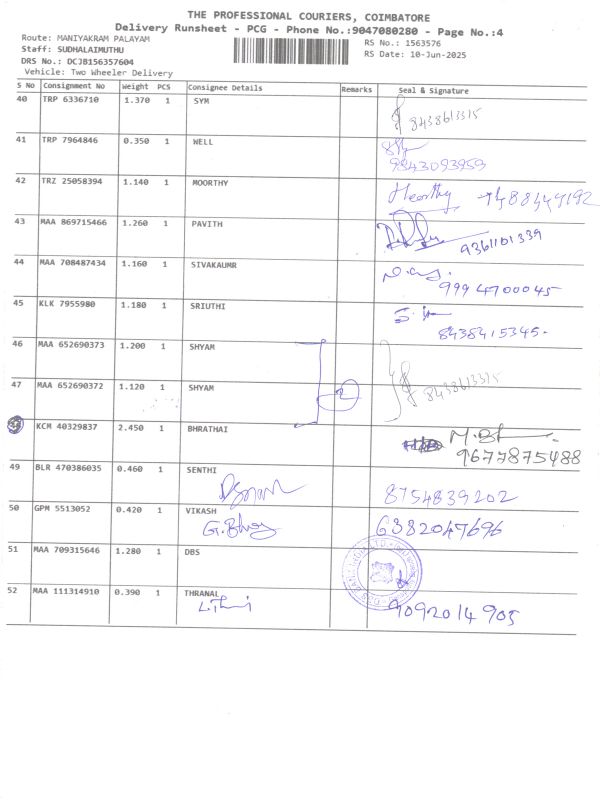 THE PROFESSIONAL COURIERS, COIMBATORE
Delivery Runsheet - PCG - Phone No.:9047080280 - Page No.:4
Route: MANIYAKRAM PALAYAM RS No.: 1563576
Staff: SUDHALAIMUTHU RS Date: 10-Jun-2025
DRS No.: DCJB156357604
Vehicle: Two Wheeler Delivery
S No Consignment No Weight PCS Consignee Details Remarks Seal & Signature
40 TRP 6336710 1.370 1 SYM
8438613315
41 TRP 7964846 0.350 1 WELL
9843093959
42 TRZ 25058394 1.140 1 MOORTHY
Moorthy 7488449192
43 MAA 869715466 1.260 1 PAVITH
9361101339
44 MAA 708487434 1.160 1 SIVAKAUMR
9994700045
45 KLK 7955980 1.180 1 SRIUTHI
8438415345-
46 MAA 652690373 1.200 1 SHYAM
47 MAA 652690372 1.120 1 SHYAM
2 8438613315
KCM 40329837 2.450 1 BHRATHAI
9677875488
49 BLR 470386035 0.460 1 SENTHI
8754839202
50 GPM 5513052 0.420 1 VIKASH
6382047696
51 MAA 709315646 1.280 1 DBS
52 MAA 111314910 0.390 1 THRANAL
9092014905